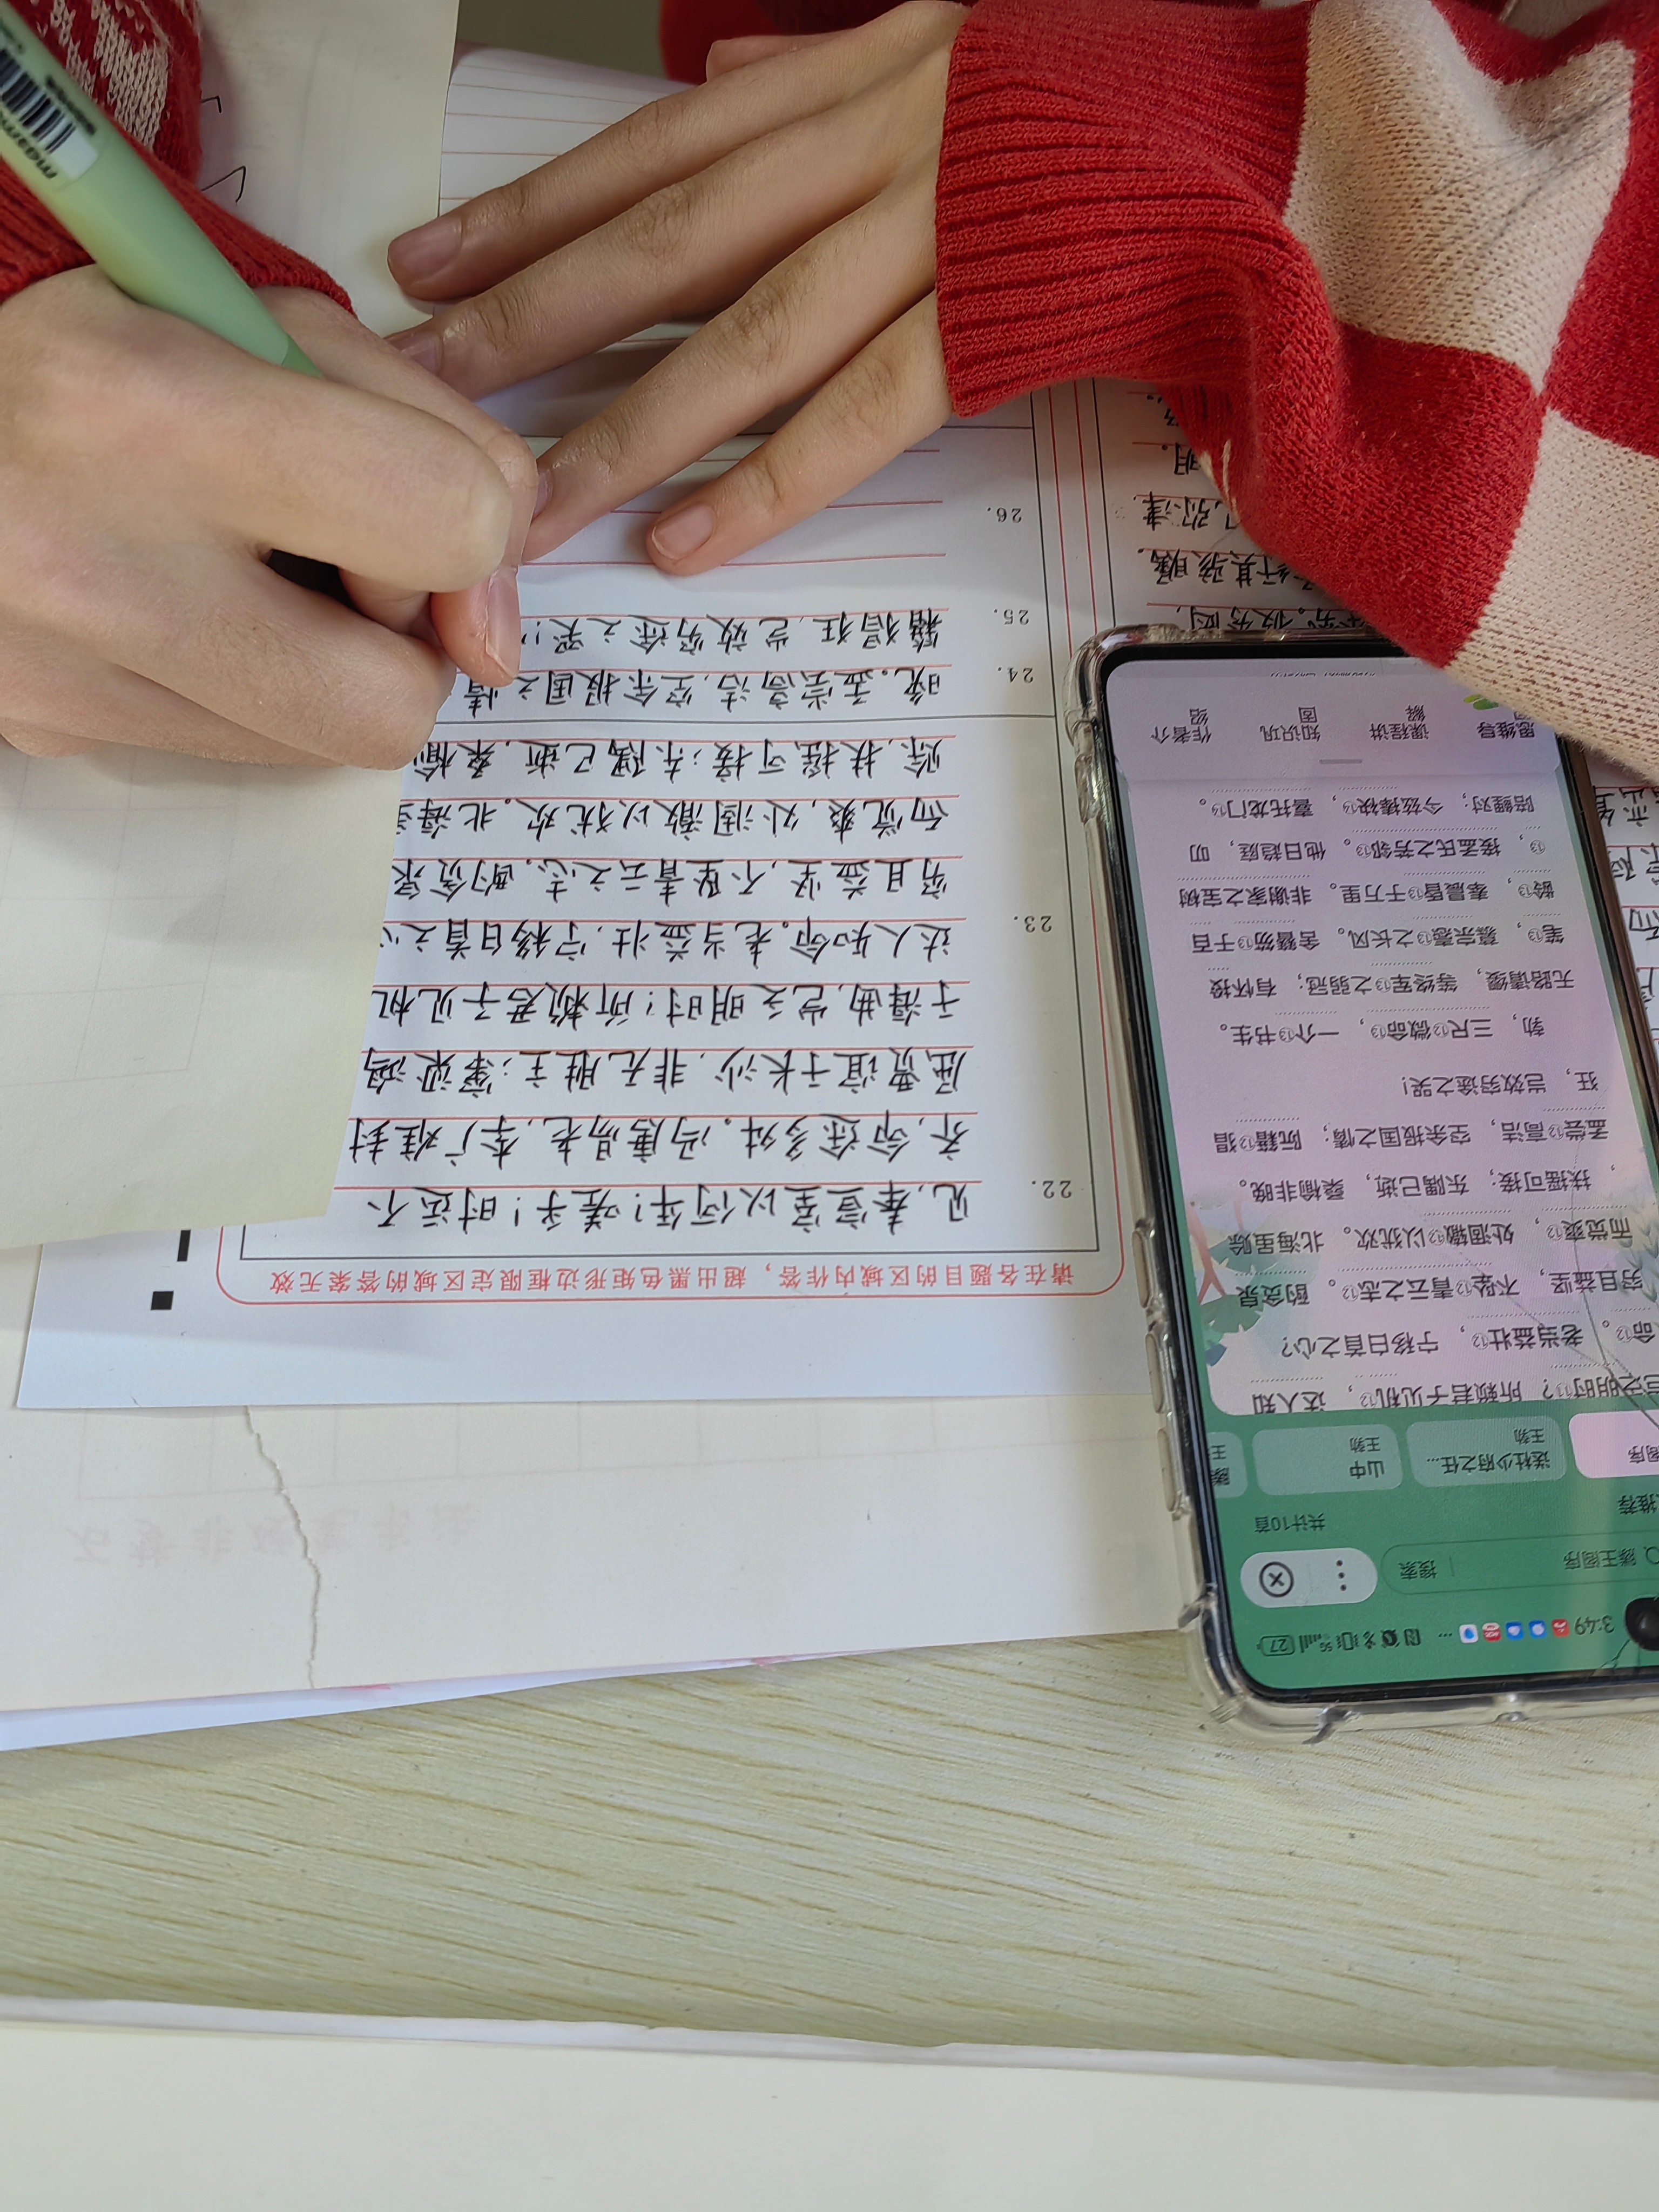 请在各题目的区域内作答，超出黑色矩形边框限定区域的答案无效
22.
见,奉宣室以何年!嗟乎!时运不
齐,命途多舛。冯唐易老,李广难封
屈贾谊于长沙,非无胜主;窜梁鸿
于海曲,岂乏明时!所赖君子见机
23.
达人知命。老当益壮,宁移白首之心
穷且益坚,不坠青云之志。酌贪泉
而觉爽,处涸辙以犹欢。北海虽
赊,扶摇可接;东隅已逝,桑榆
24.
晚。孟尝高洁,空余报国之情
25.
籍猖狂,岂效穷途之哭!
26.
3:49
27
滕王阁序
搜索
共计10首
送杜少府之任...
王勃
山中
王勃
岂乏明时？所赖君子见机，达人知
命。老当益壮，宁移白首之心？
穷且益坚，不坠青云之志。酌贪泉
而觉爽，处涸辙以犹欢。北海虽赊
，扶摇可接；东隅已逝，桑榆非晚。
孟尝高洁，空余报国之情；阮籍猖
狂，岂效穷途之哭！
勃，三尺微命，一介书生。
无路请缨，等终军之弱冠；有怀投
笔，慕宗悫之长风。舍簪笏于百
龄，奉晨昏于万里。非谢家之宝树
，接孟氏之芳邻。他日趋庭，叨
陪鲤对；今兹捧袂，喜托龙门。
思维导
课程讲
解
知识巩
固
作者介
绍